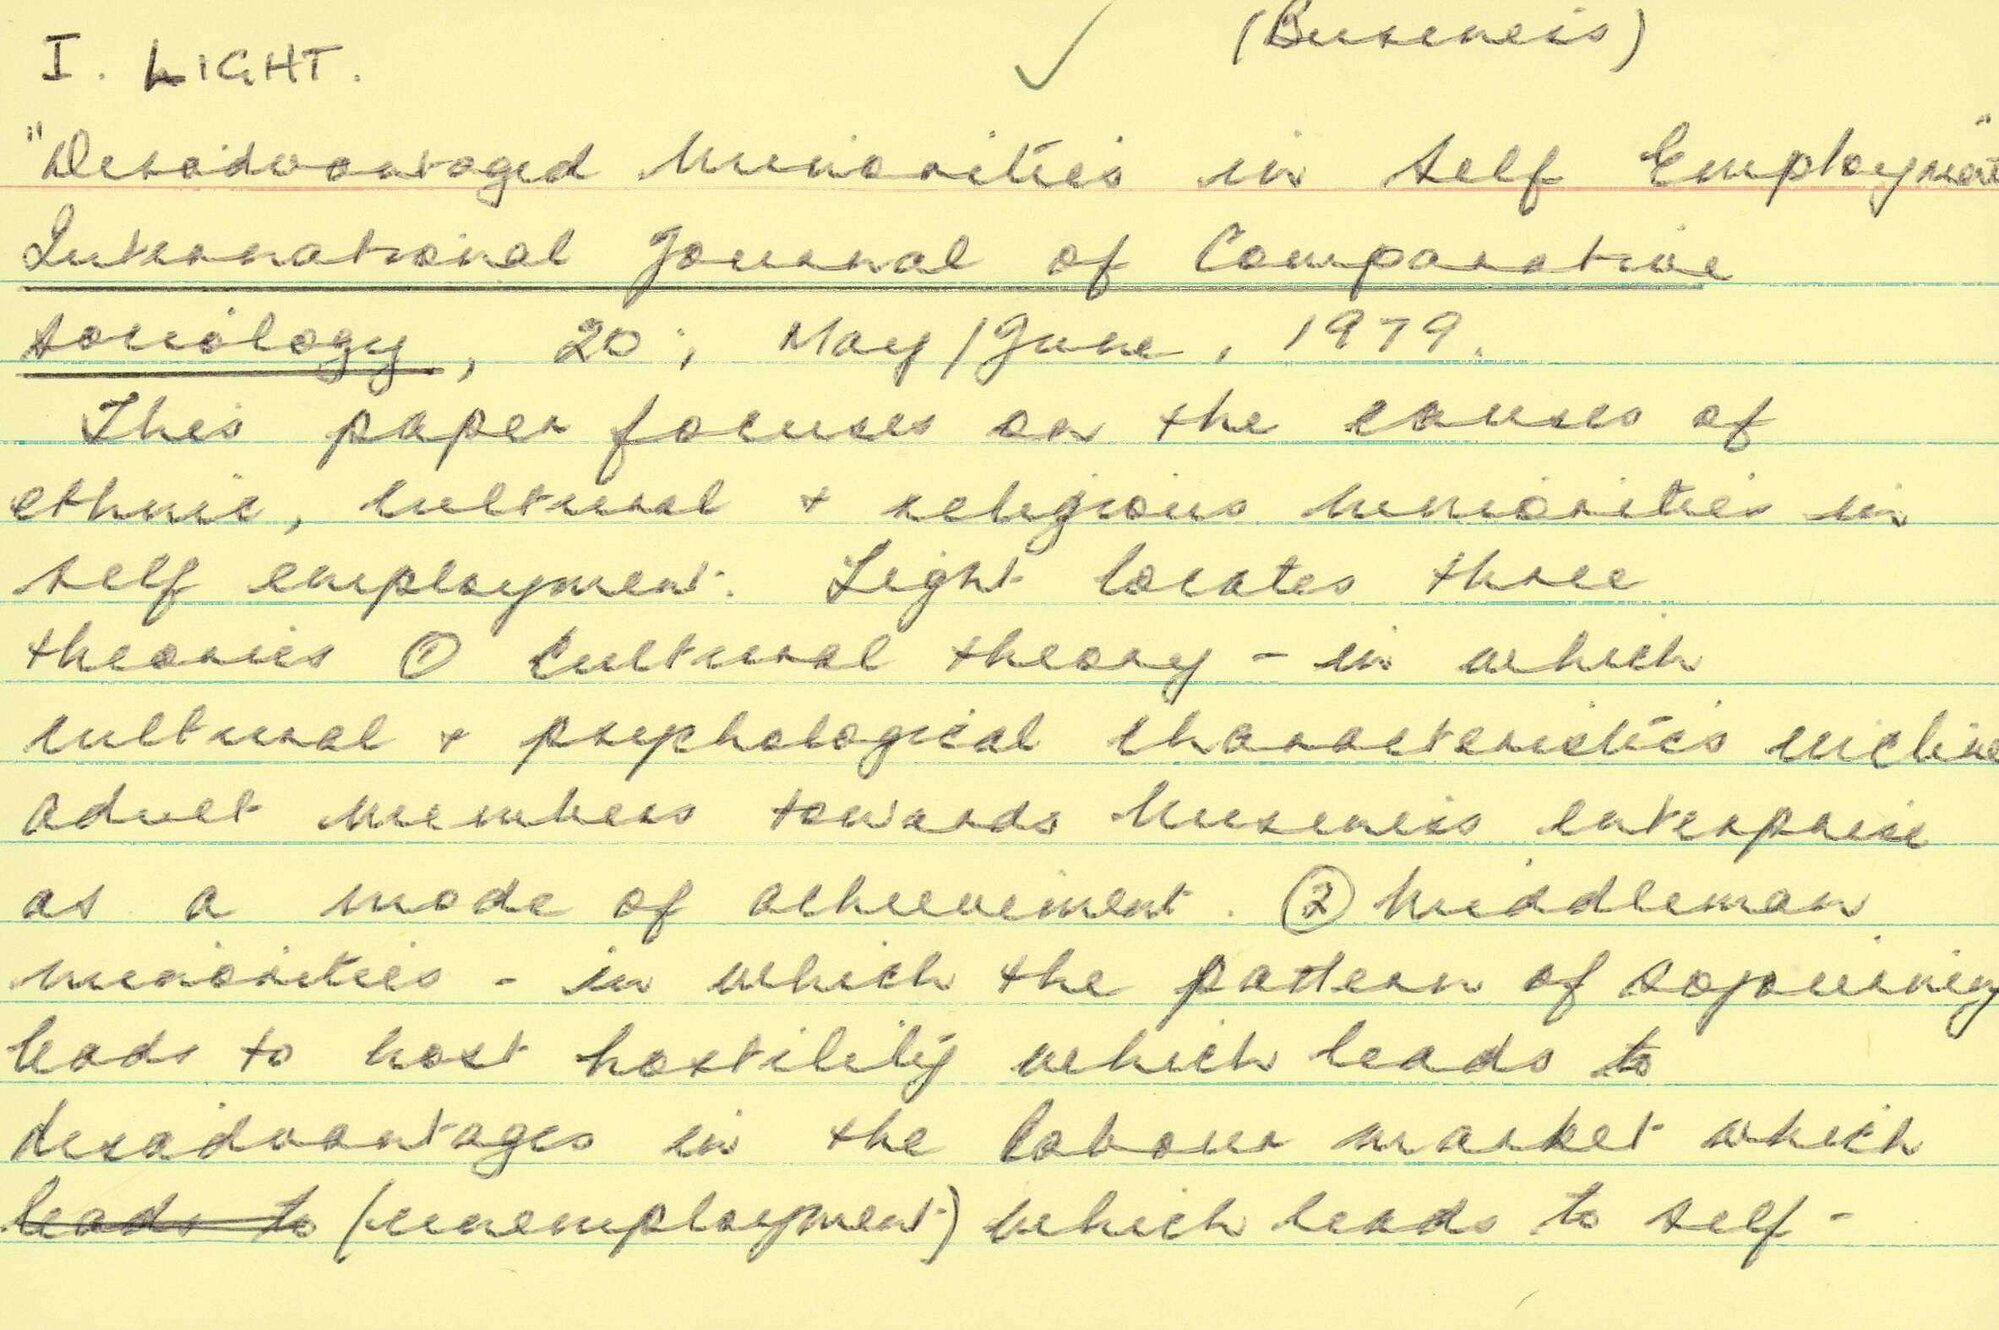 I. LIGHT. ✓ (Business)
"Disadvantaged Minorities in Self Employment"
International Journal of Comparative
Sociology, 20; May/June, 1979.
This paper focuses on the causes of
ethnic, cultural + religious minorities in
self employment. Light locates three
theories ① Cultural theory - in which
cultural + psychological characteristics incline
adult members towards business enterprise
as a mode of achievement. ② Middleman
minorities - in which the pattern of sojourning
leads to host hostility which leads to
disadvantages in the labour market which
leads to (unemployment) which leads to self-